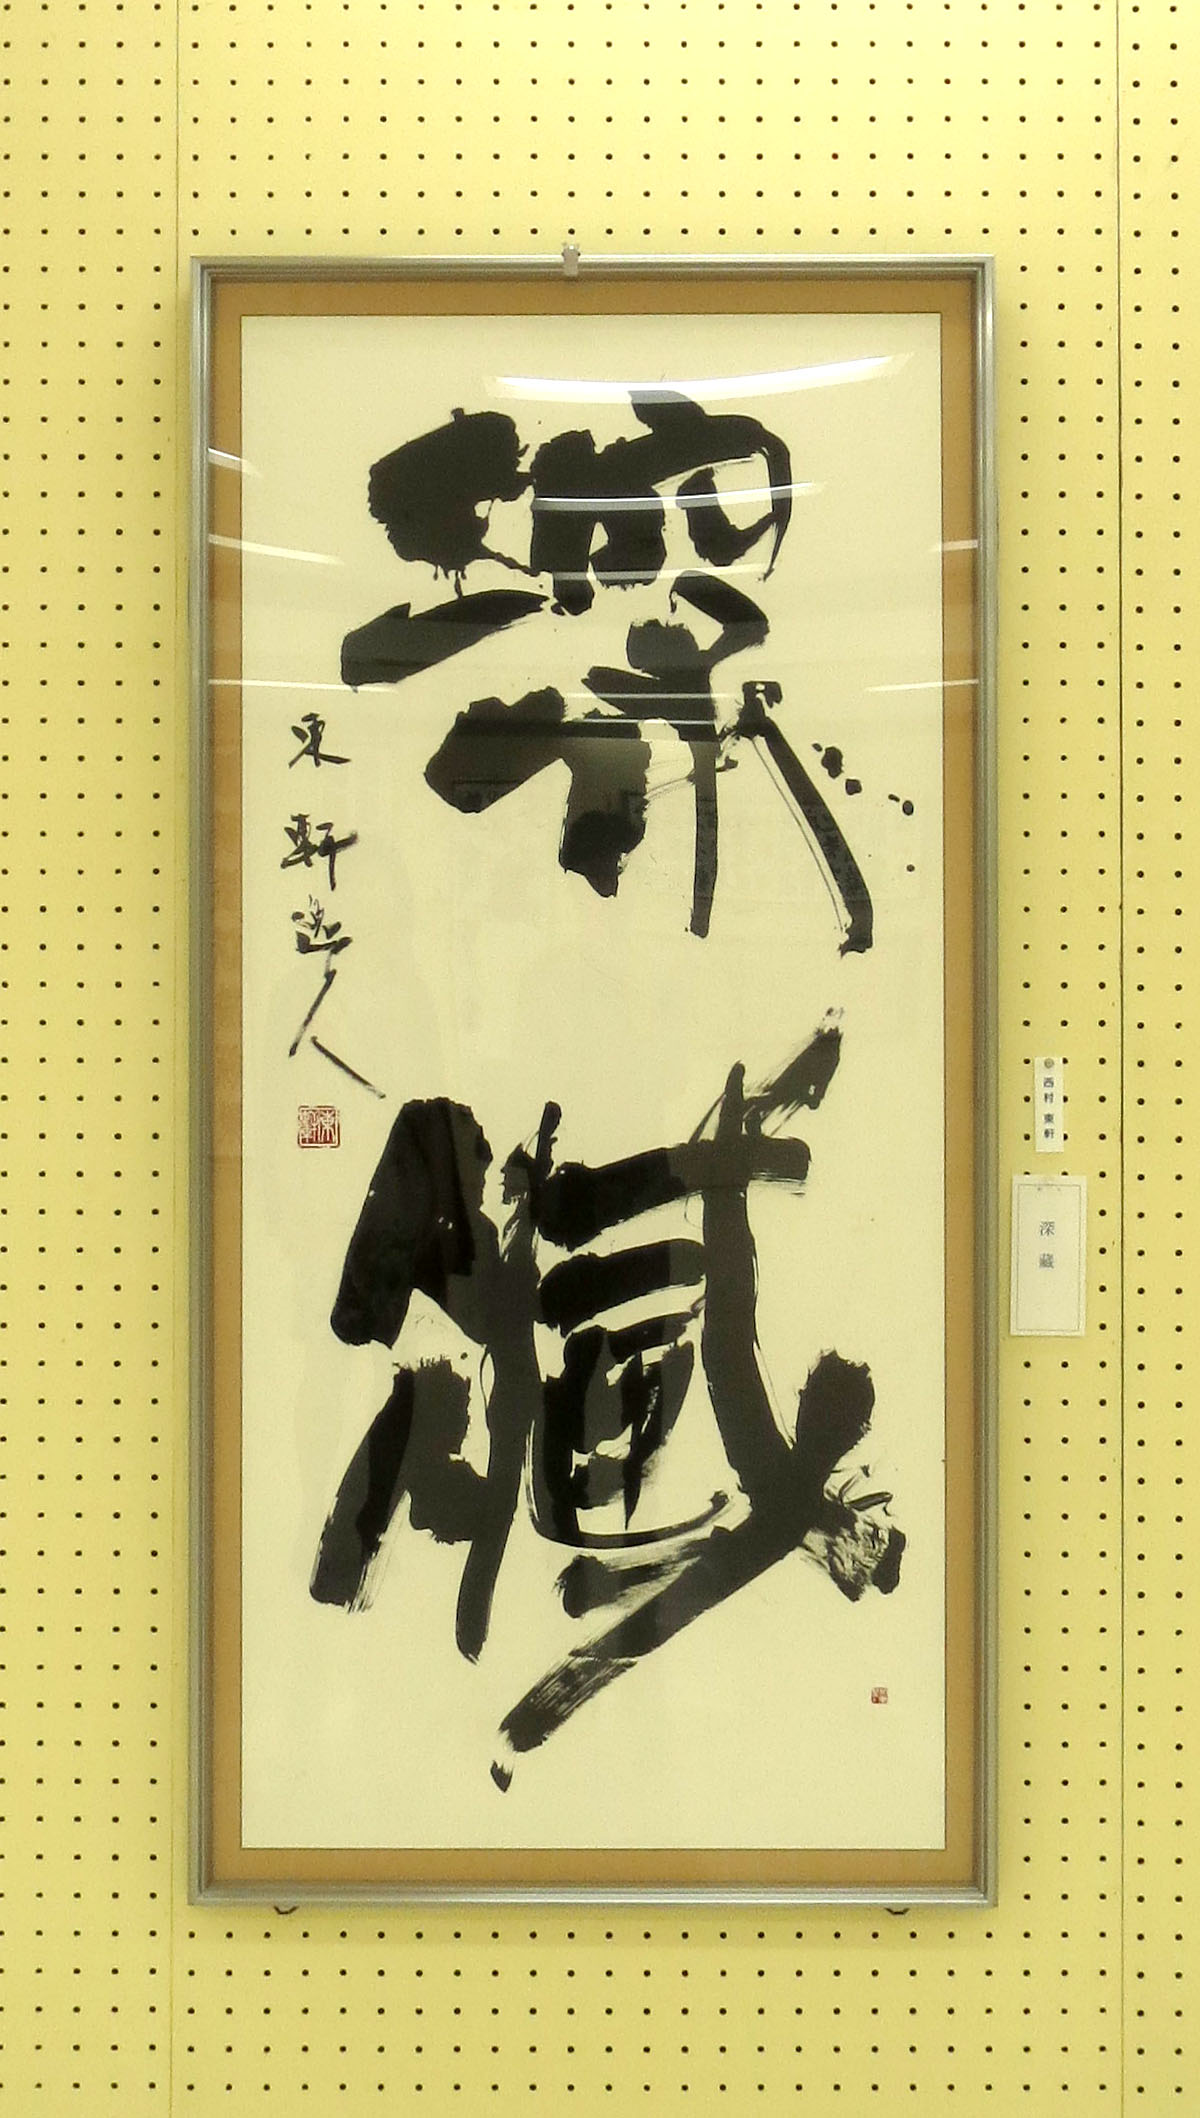 深藏
東軒逸人
西村 東軒
深藏